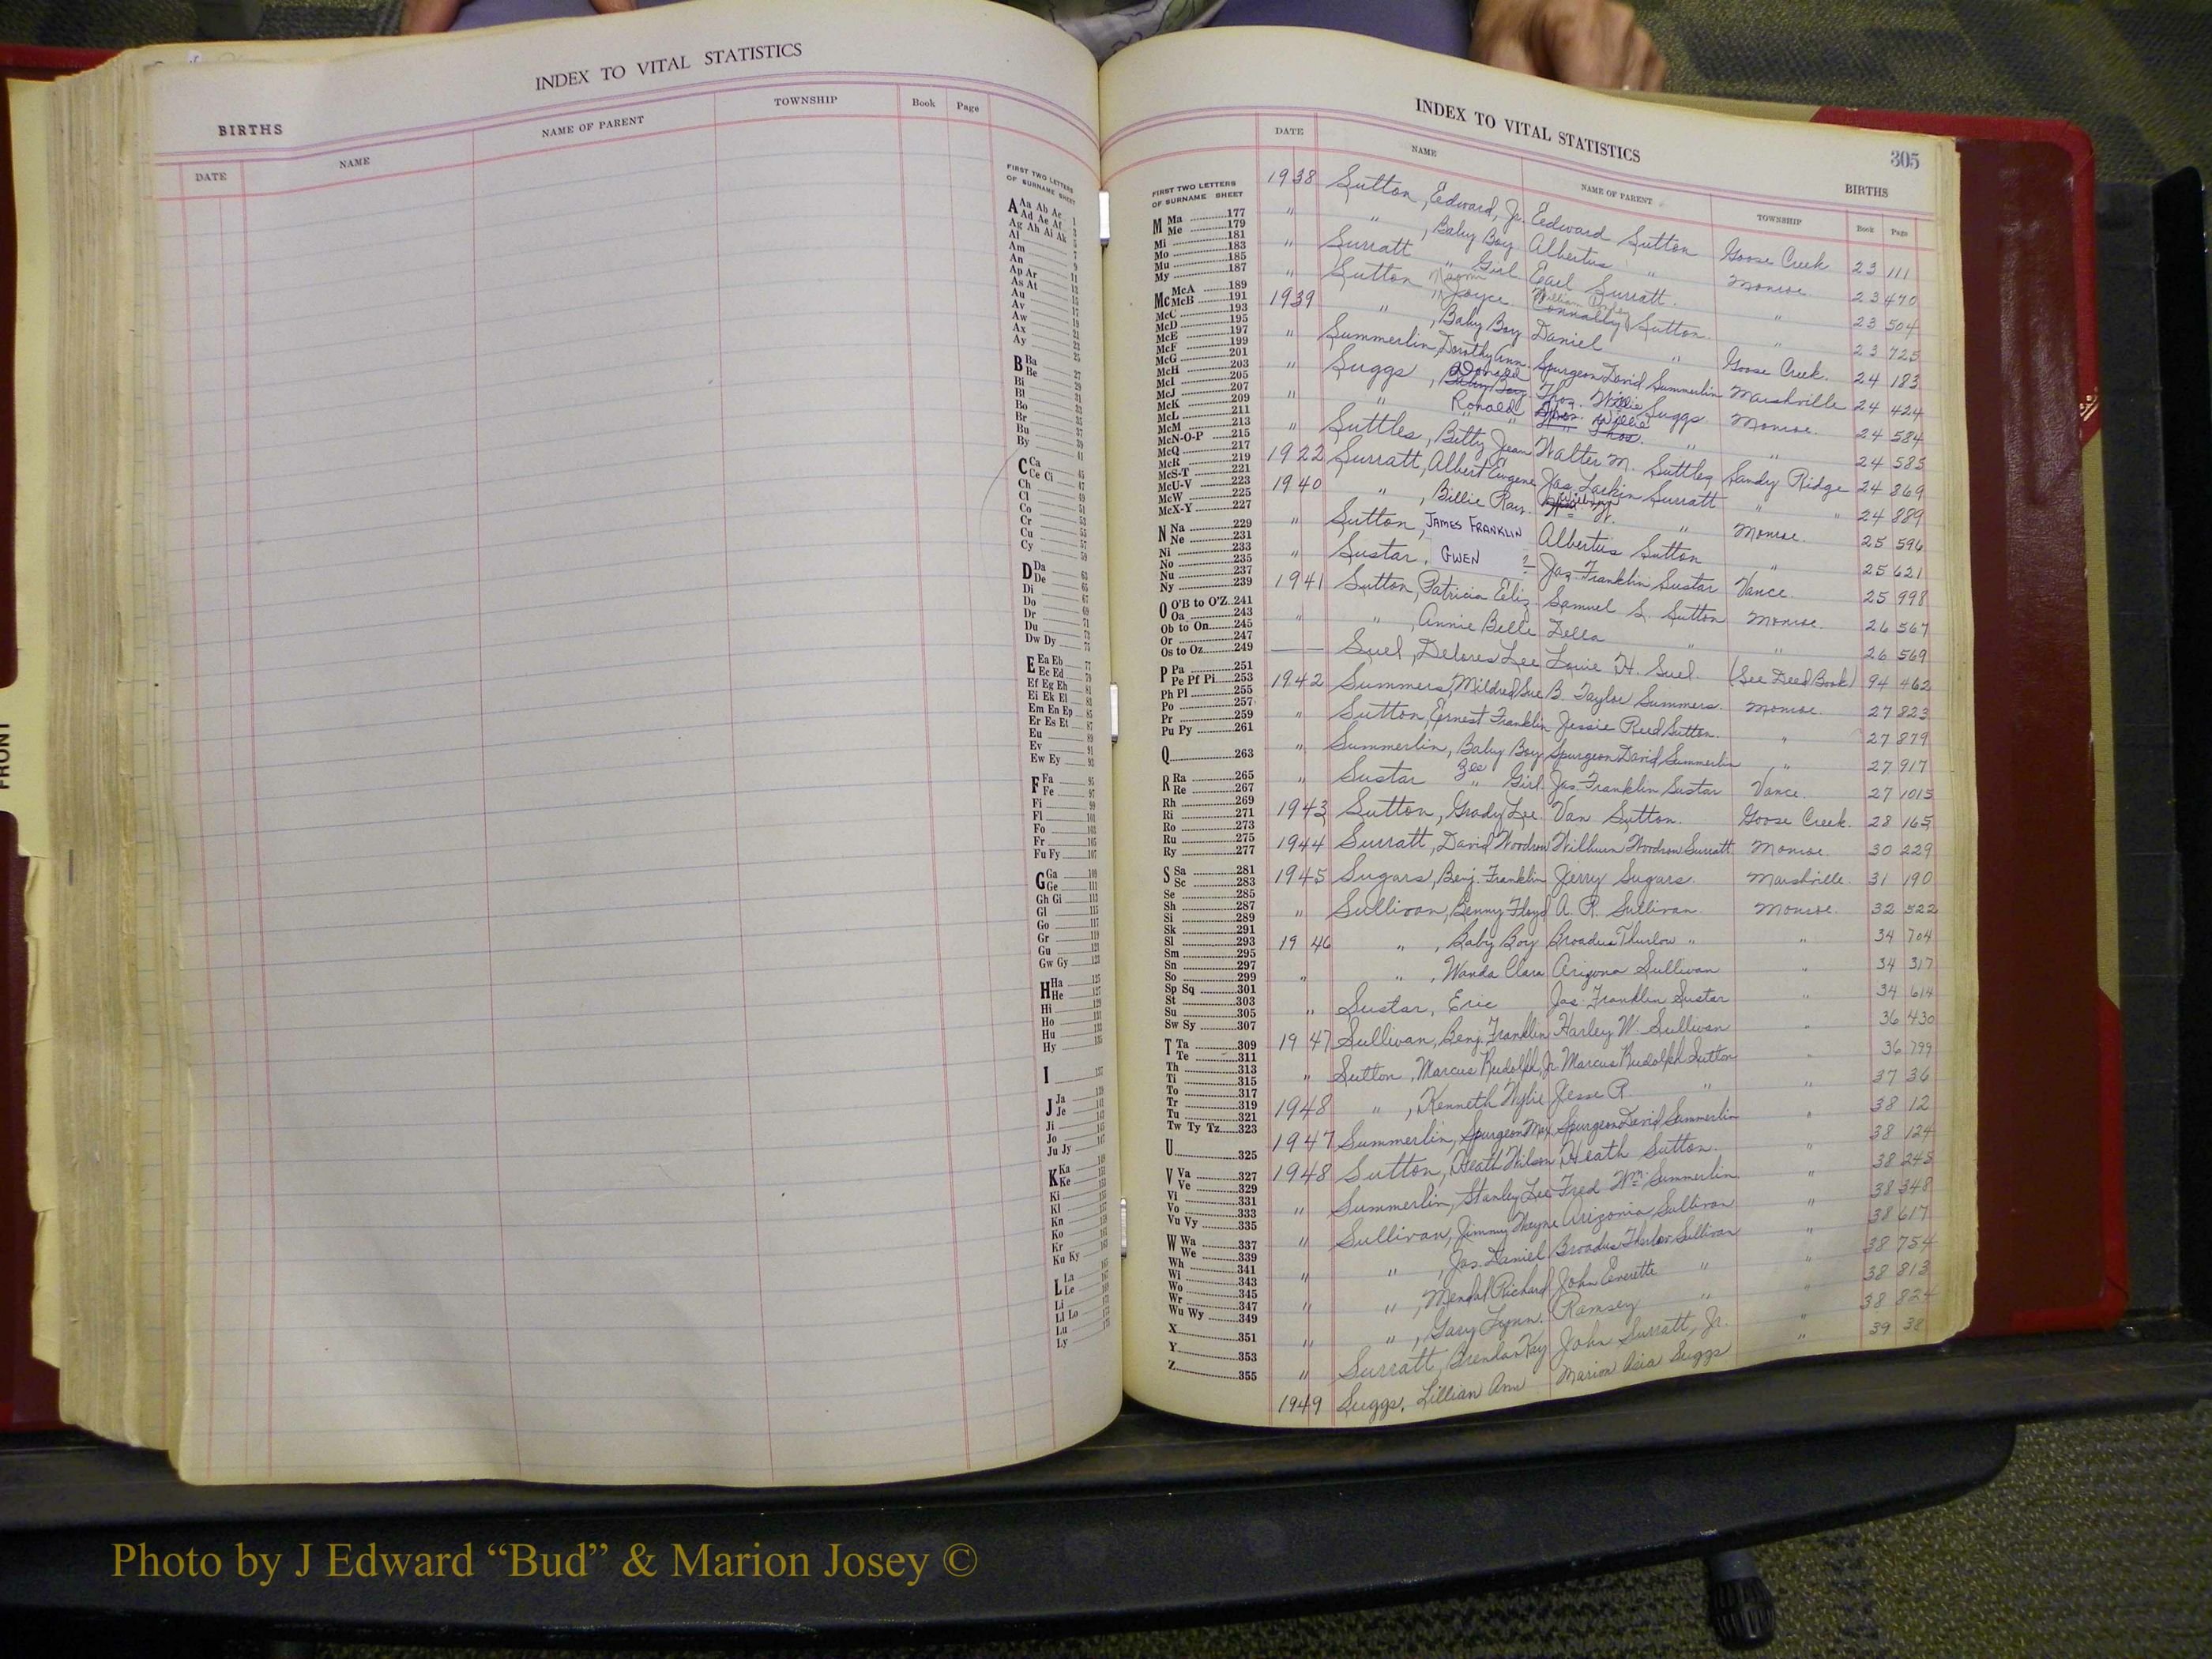 INDEX TO VITAL STATISTICS
BIRTHS
DATE NAME NAME OF PARENT TOWNSHIP Book Page
FIRST TWO LETTERS
OF SURNAME SHEET
A Aa Ab Ac 1
Ad Ae Af
Ag Ah Ai Ak
Al
Am
An
Ap Ar
As At
Au
Av
Aw
Ax
Ay
B Ba
Be
Bi
Bl
Bo
Br
Bu
By
C Ca
Ce Ci
Ch
Cl
Co
Cr
Cu
Cy
D Da
De
Di
Do
Dr
Du
Dw Dy
E Ea Eb
Ec Ed
Ef Eg Eh
Ei Ek El
Em En Ep
Er Es Et
Eu
Ev
Ew Ey
F Fa
Fe
Fi
Fl
Fo
Fr
Fu Fy
G Ga
Ge
Gh Gi
Gl
Go
Gr
Gu
Gw Gy
H Ha
He
Hi
Ho
Hu
Hy
I
J Ja
Je
Ji
Jo
Ju Jy
K Ka
Ke
Ki
Kl
Kn
Ko
Kr
Ku Ky
L La
Le
Li
Ll Lo
Lu
Ly
INDEX TO VITAL STATISTICS
305
BIRTHS
DATE NAME NAME OF PARENT TOWNSHIP Book Page
FIRST TWO LETTERS
OF SURNAME SHEET
M Ma 177
Me 179
Mi 181
Mo 183
Mu 185
My 187
Mc McA 189
McB 191
McC 193
McD 195
McE 197
McF 199
McG 201
McH 203
McI 205
McJ 207
McK 209
McL 211
McM 213
McN-O-P 215
McQ 217
McR 219
McS-T 221
McU-V 223
McW 225
McX-Y 227
N Na 229
Ne 231
Ni 233
No 235
Nu 237
Ny 239
O O'B to O'Z 241
Oa 243
Ob to On 245
Or 247
Os to Oz 249
P Pa 251
Pe Pf Pi 253
Ph Pl 255
Po 257
Pr 259
Pu Py 261
Q 263
R Ra 265
Re 267
Rh 269
Ri 271
Ro 273
Ru 275
Ry 277
S Sa 281
Sc 283
Se 285
Sh 287
Si 289
Sk 291
Sl 293
Sm 295
Sn 297
So 299
Sp Sq 301
St 303
Su 305
Sw Sy 307
T Ta 309
Te 311
Th 313
Ti 315
To 317
Tr 319
Tu 321
Tw Ty Tz 323
U 325
V Va 327
Ve 329
Vi 331
Vo 333
Vu Vy 335
W Wa 337
We 339
Wh 341
Wi 343
Wo 345
Wr 347
Wu Wy 349
X 351
Y 353
Z 355
1938 Sutton, Edward, Jr. Edward Sutton Goose Creek 23 111
" " , Baby Boy Albertus " Monroe 23 470
" Surratt " Girl Earl Surratt " 23 504
" Sutton Naomi Joyce William Connally Sutton " 23 725
1939 " , Baby Boy Daniel " Goose Creek 24 183
" Summerlin, Dorothy Ann Spurgeon David Summerlin Marshville 24 424
" Suggs, Donald Baby Boy Thos. Willie Suggs Monroe 24 584
" " Ronald " Thos. Willie " " 24 585
" Suttles, Betty Jean Walter M. Suttles Sandy Ridge 24 869
1922 Surratt, Albert Eugene Jas. Larkin Surratt " " 24 889
1940 " , Billie Ray " Monroe 25 596
" Sutton, JAMES FRANKLIN Albertus Sutton " 25 621
" Sustar, GWEN ? Jas. Franklin Sustar Vance 25 998
1941 Sutton, Patricia Eliz. Samuel S. Sutton Monroe 26 567
" " , Annie Belle Della " " 26 569
Suel, Delores Lee Louie H. Suel (See Deed Book) 94 462
1942 Summers, Mildred Sue B. Taylor Summers Monroe 27 823
" Sutton, Ernest Franklin Jessie Reed Sutton " 27 879
" Summerlin, Baby Boy Spurgeon David Summerlin " 27 917
" Sustar " Girl Jas. Franklin Sustar Vance 27 1015
1943 Sutton, Grady Lee Van Sutton Goose Creek 28 165
1944 Surratt, David Woodrow Wilburn Woodrow Surratt Monroe 30 229
1945 Sugars, Benj. Franklin Jerry Sugars Marshville 31 190
" Sullivan, Benny Floyd A. R. Sullivan Monroe 32 522
1946 " , Baby Boy Broadus Thurlow " " 34 704
" " , Wanda Clara Arizona Sullivan " 34 317
" Sustar, Eric Jas. Franklin Sustar " 34 614
1947 Sullivan, Benj. Franklin Harley W. Sullivan " 36 430
" Sutton, Marcus Rudolph, Jr. Marcus Rudolph Sutton " 36 799
1948 " , Kenneth Wylie Jesse R. " " 37 36
1947 Summerlin, Spurgeon Max Spurgeon David Summerlin " 38 12
1948 Sutton, Heath Wilson Heath Sutton " 38 124
" Summerlin, Stanley Lee Fred Wm. Summerlin " 38 243
" Sullivan, Jimmy Wayne Arizonia Sullivan " 38 348
" " , Jas. Daniel Broadus Thurlow Sullivan " 38 617
" " , Mendal Richard John Everette " " 38 754
" " , Gary Lynn Ramsey " " 38 813
" Surratt, Brenda Kay John Surratt, Jr. " 38 824
1949 Suggs, Lillian Ann Marion Asia Suggs " 39 38
FRONT
Photo by J Edward “Bud” & Marion Josey ©